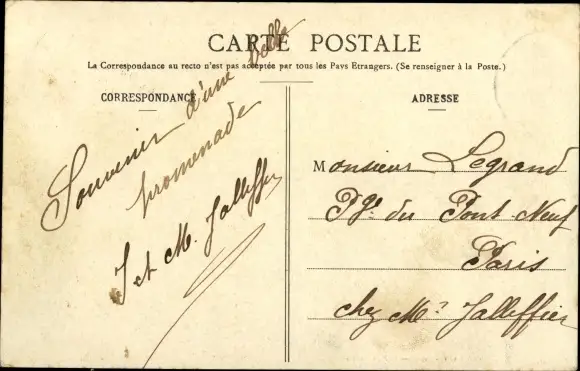 CARTE POSTALE
La Correspondance au recto n'est pas acceptée par tous les Pays Etrangers. (Se renseigner à la Poste.)
CORRESPONDANCE
Souvenir d'une belle
promenade
J et M. Jalleffier
ADRESSE
Monsieur Legrand
Pge du Pont-Neuf
Paris
chez Mr Jalleffier